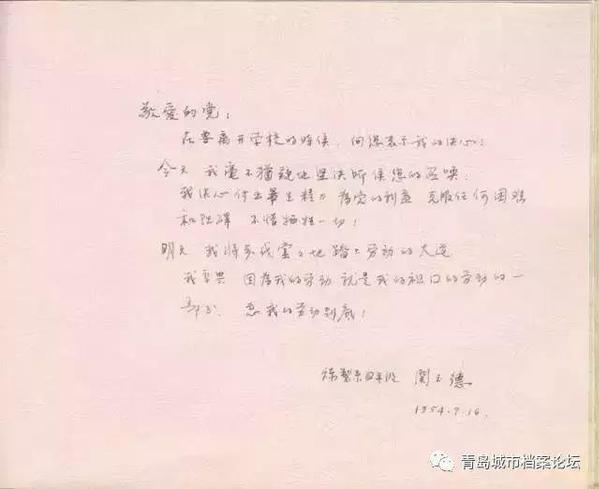 敬爱的党：
在要离开学校的时候，向您表示我的决心：
今天 我毫不犹疑地坚决听候您的召唤：
我决心付出毕生精力 为党的利益 克服任何困难
和阻碍 不惜牺牲一切！
明天 我将 地踏上劳动的大道
我高兴 因为我的劳动 就是我的祖国的劳动的一
部分
四年级 关玉德
1954.9.16
青岛城市档案论坛